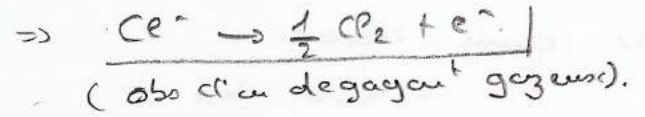 => Cl⁻ → 1/2 Cl₂ + e⁻.
( obs d'un dégagant gazeux).